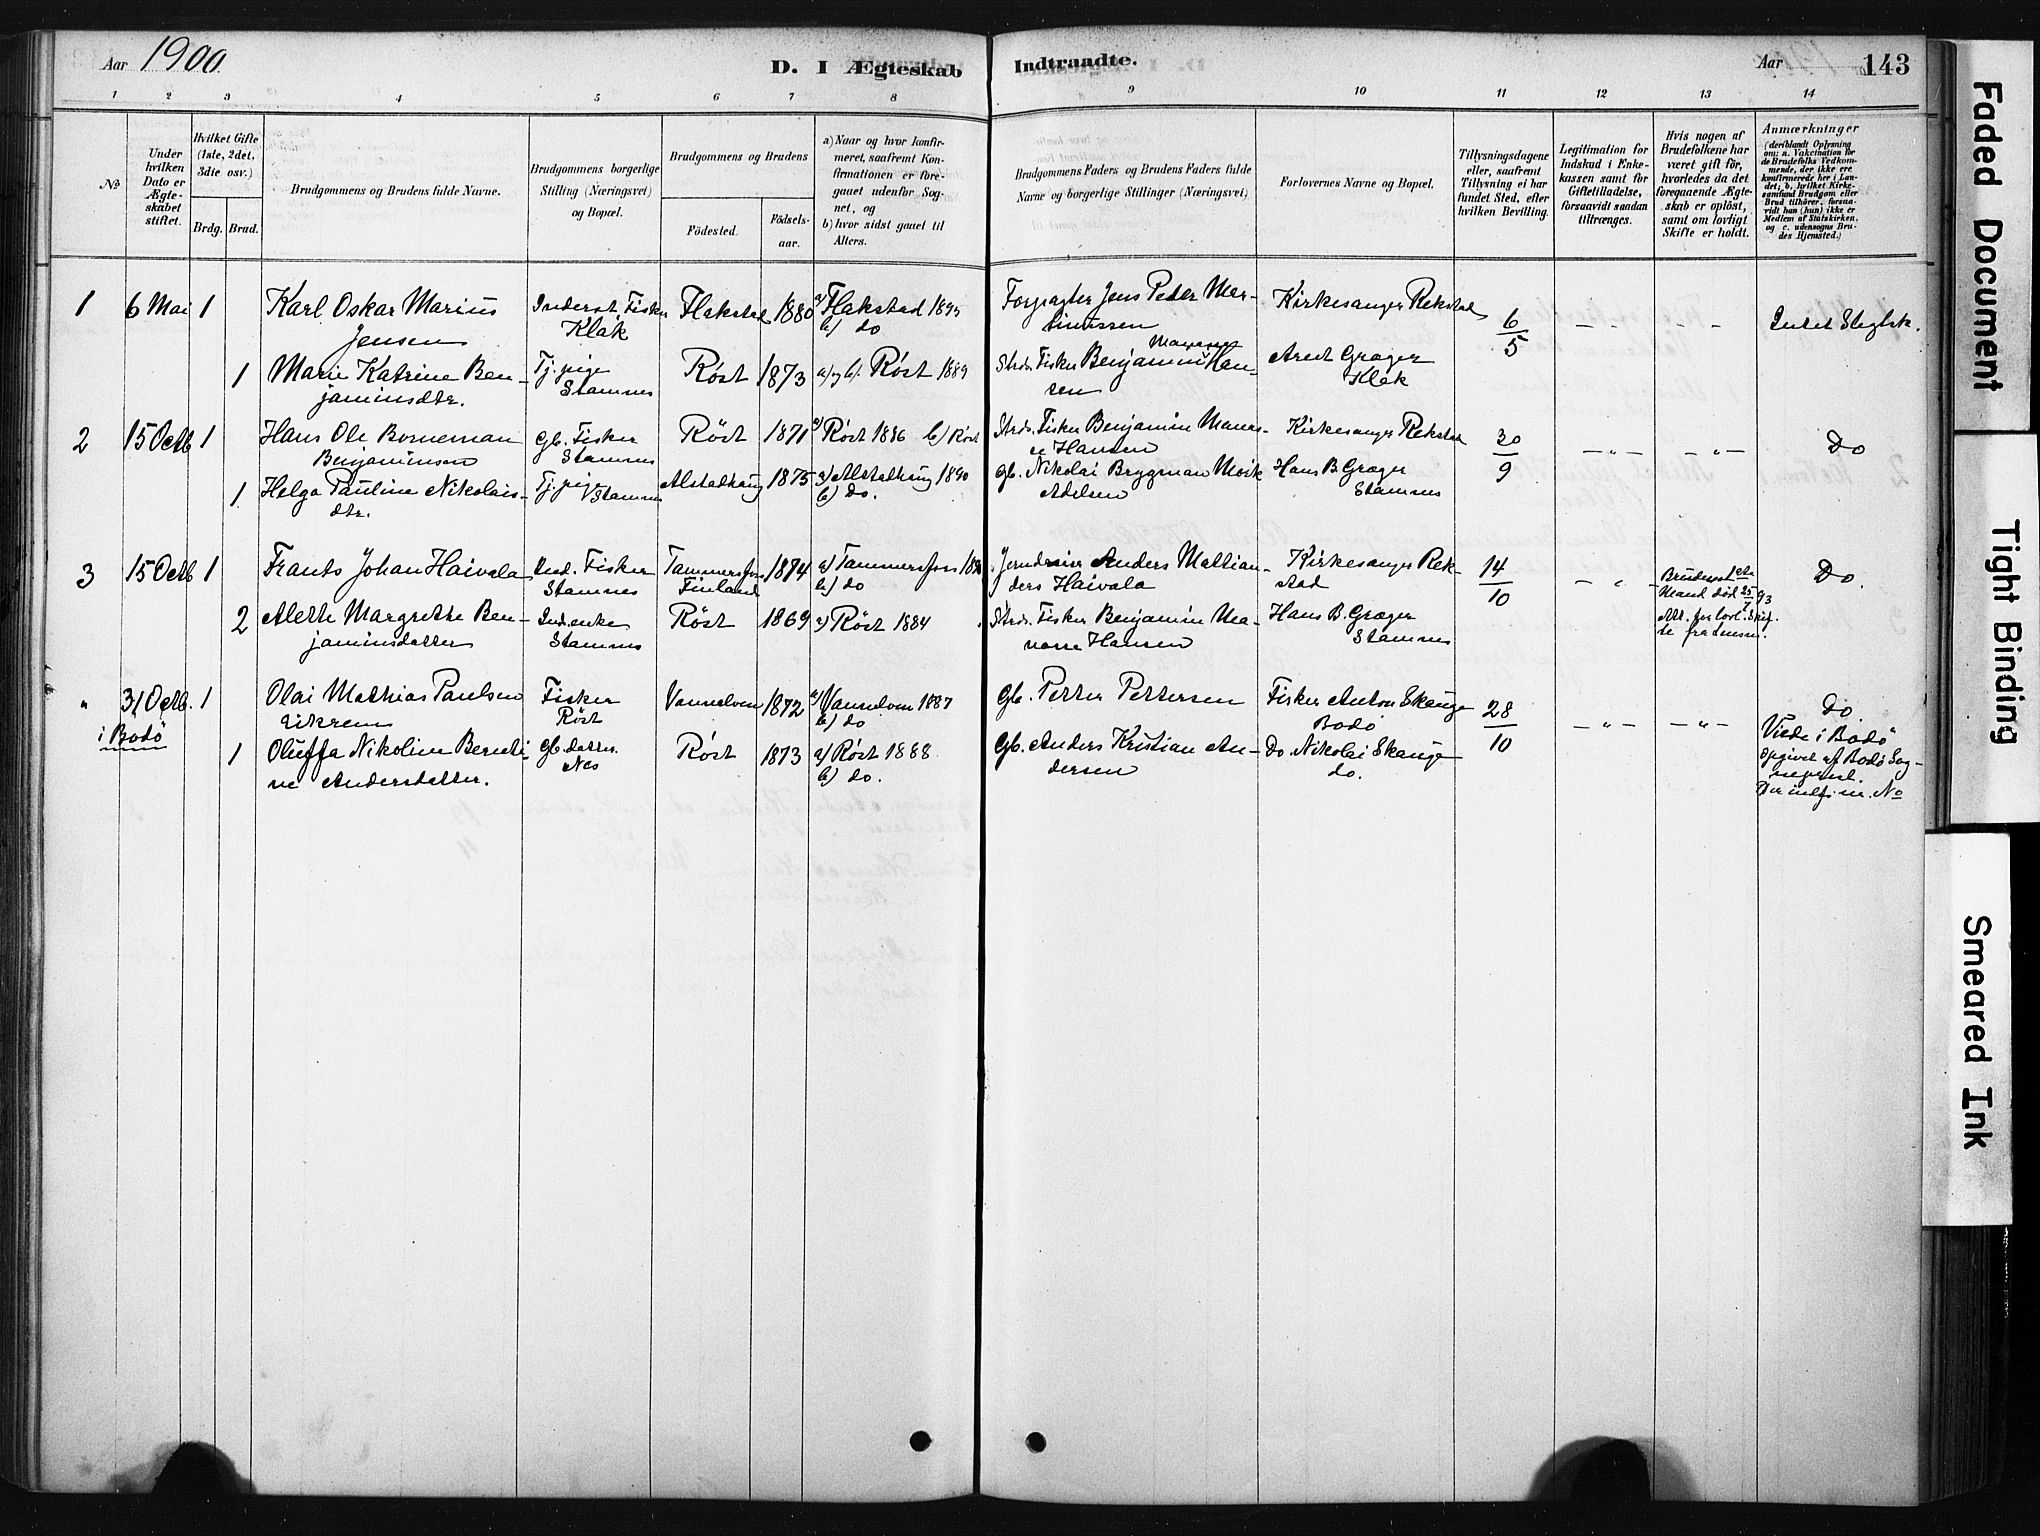 Aar 1900
D. I Ægteskab Indtraadte.
Aar 143
1 2 3 4 5 6 7 8 9 10 11 12 13 14
No
Under hvilken Dato er Ægteskabet stiftet.
Hvilket Gifte (1ste, 2det, 3die osv.)
Brdg. Brud.
Brudgommens og Brudens fulde Navne.
Brudgommens borgerlige Stilling (Næringsvei) og Bopæl.
Brudgommens og Brudens
Fødested.
Fødsels-aar.
a) Naar og hvor konfirmeret, saafremt Konfirmationen er foregaaet udenfor Sognet, og
b) hvor sidst gaaet til Alters.
Brudgommens Faders og Brudens Faders fulde Navne og borgerlige Stillinger (Næringsvei).
Forlovernes Navne og Bopæl.
Tillysningsdagene eller, saafremt Tillysning ei har fundet Sted, efter hvilken Bevilling.
Legitimation for Indskud i Enkekassen samt for Giftetilladelse, forsaavidt saadan tiltrænges.
Hvis nogen af Brudefolkene har været gift før, hvorledes da det foregaaende Ægteskab er opløst, samt om lovligt Skifte er holdt.
Anmærkninger
(deriblandt Oplysning om: a. Vakcination for de Brudefolks Vedkommende, der ikke ere konfirmerede her i Landet; b. hvilket Kirkesamfund Brudgom eller Brud tilhører, forsaavidt han (hun) ikke er Medlem af Statskirken, og c. udensogns Brudes Hjemsted.)
1 6 Mai 1 Karl Oskar Marius Jensen
Inderst, Fisker Klak
Flakstad 1880
a) Flakstad 1895
b) do
Forpagter Jens Peder Martinussen
Kirkesanger Rekstad
6/5
Intet Slegtsk.
1 Marie Katrine Benjaminsdtr.
Tj.pige Stamnes
Røst 1873
a) og b) Røst 1889
Strds. Fisker Benjamin Hansen
Arent Græger Klak
2 15 Octb 1 Hans Ole Borneman Benjaminsen
Gb. Fisker Stamnes
Røst 1871
a) Røst 1886 b) Røst
Strds. Fisker Benjamin Hansen
Kirkesanger Rekstad
30/9
Do
1 Helga Pauline Nikolaisdtr.
Tj.pige Stamnes
Alstadhaug 1875
a) Alstadhaug 1890
b) do.
Gb. Nikolai Brygman Adelsen
Hans B. Græger Stamnes
3 15 Octb 1 Frants Johan Haivala
Ind. Fisker Stamnes
Tammersfors Finland 1874
a) Tammersfors
b) do
Anders Mattianders Haivala
Kirkesanger Rekstad
14/10
Do.
2 Alette Margrethe Benjaminsdatter
Ind.enke Stamnes
Røst 1869
a) Røst 1884
Strds. Fisker Benjamin Hansen
Hans B. Græger Stamnes
" 31 Octb. 1 Olai Mathias Paulsen
i Bodø
Fisker Røst
Vanelven 1872
a) Vanelven 1887
b) do
Gb. Petter Pettersen
Fisker Anton Skauge Bodø
28/10
Do
1 Oluffa Nikoline Berntine Andersdatter.
Gb.datter. Nes
Røst 1873
a) Røst 1888
b) do.
Gb. Anders Kristian Andersen
Do. Nikolai Skauge do.
Viede i Bodø
opgivet af Bodø Sognepræst.
Faded Document
Tight Binding
Smeared Ink